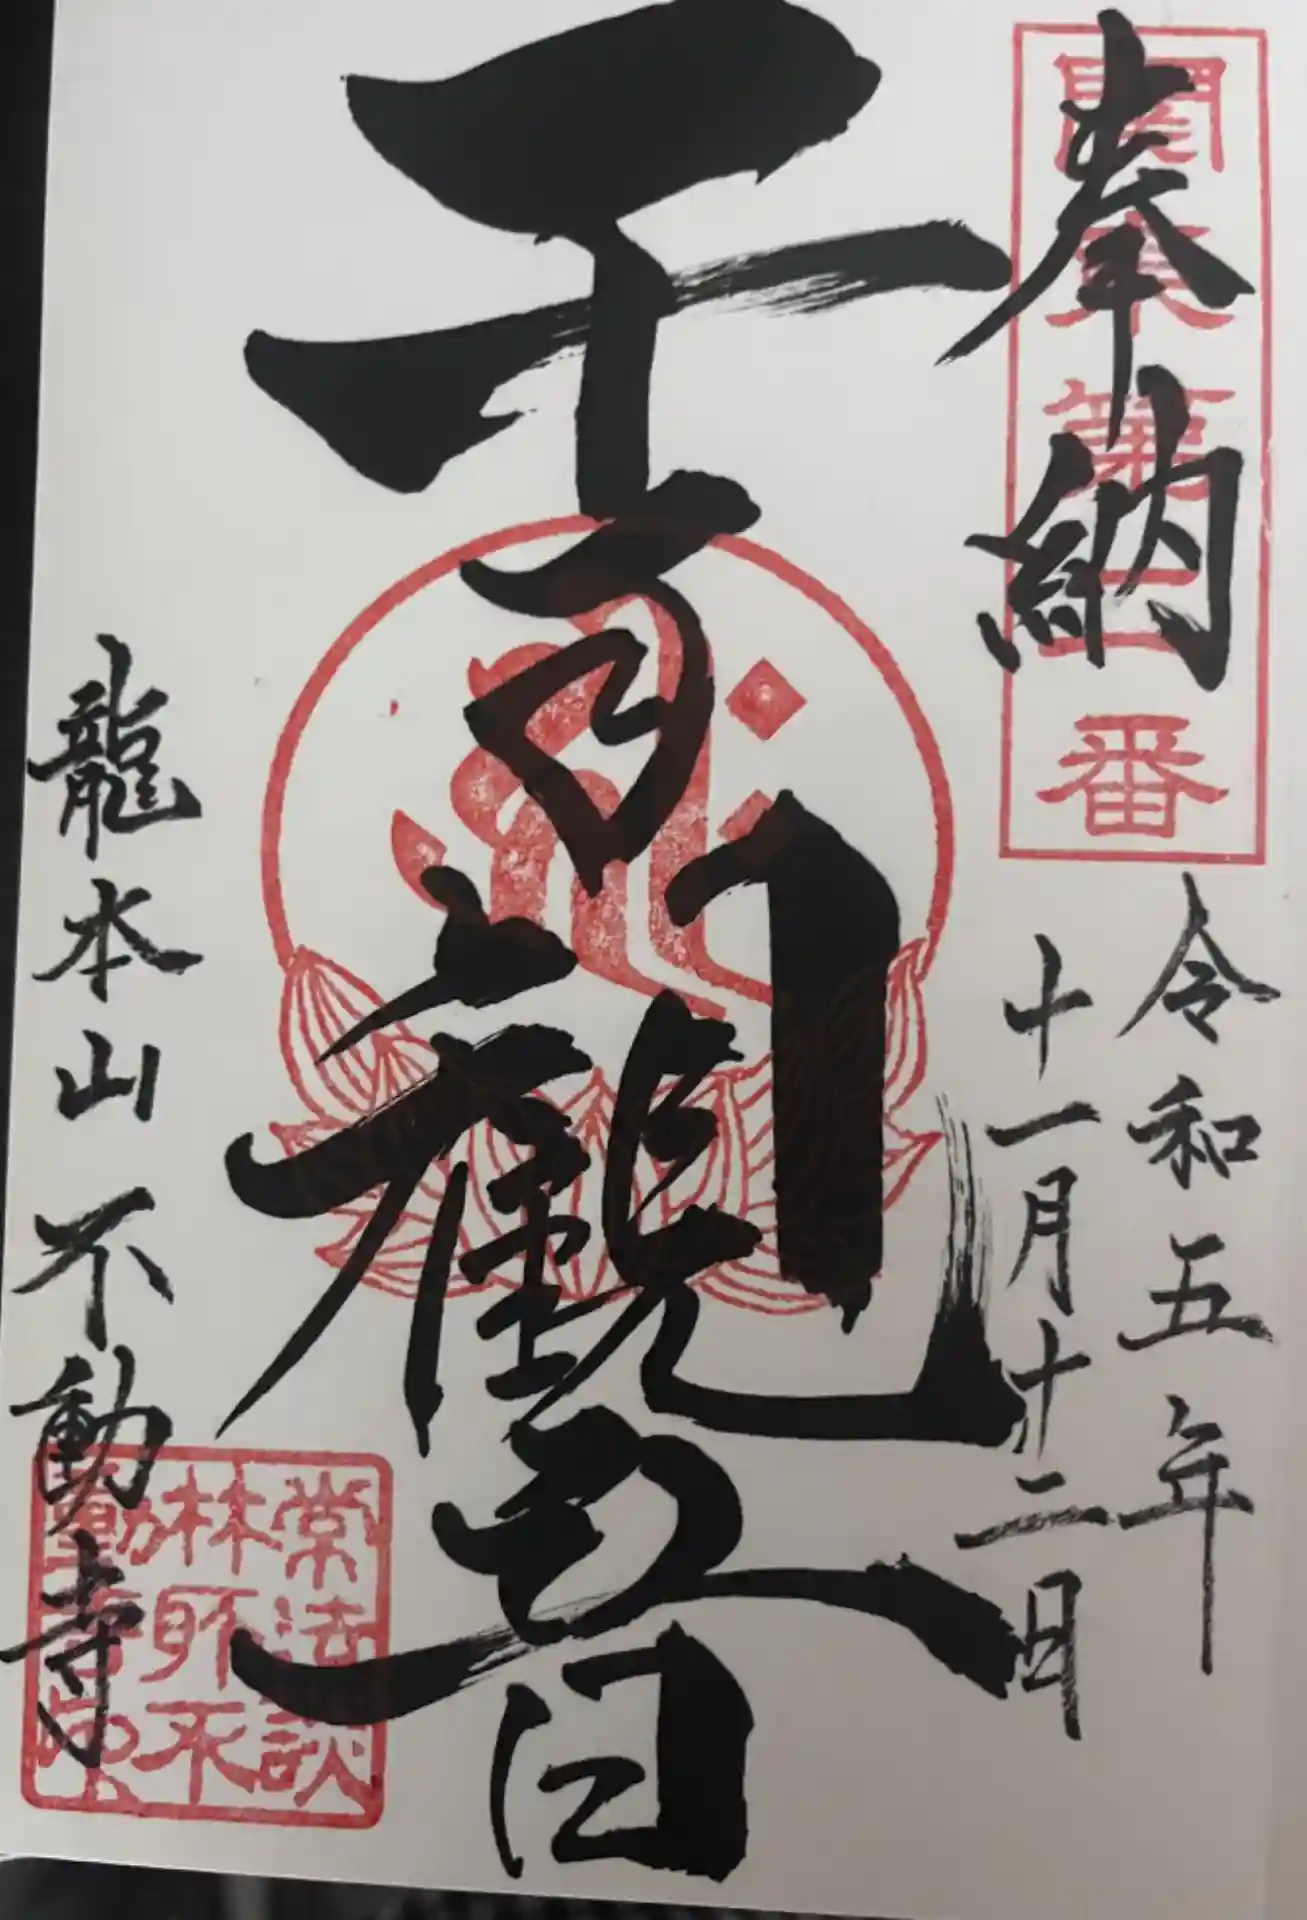 奉納
関東第二番
令和五年
十一月十二日
千手観音
龍本山不動寺
常法談
林所不
動寺印